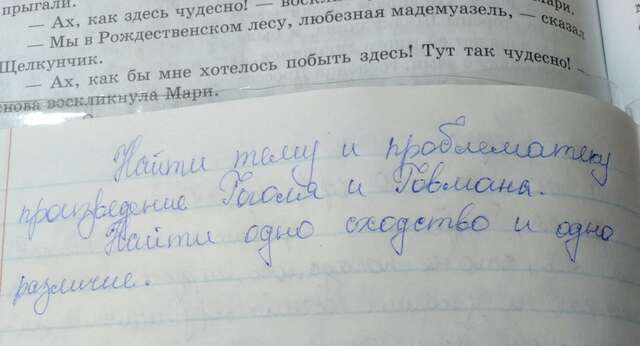 прыгали.
— Ах, как здесь чудесно! — воскли Мари.
— Мы в Рождественском лесу, любезная мадемуазель, — сказал
Щелкунчик.
— Ах, как бы мне хотелось побыть здесь! Тут так чудесно! —
снова воскликнула Мари.
Найти тему и проблематику
произведение Гоголя и Говмана.
Найти одно сходство и одно
различие.